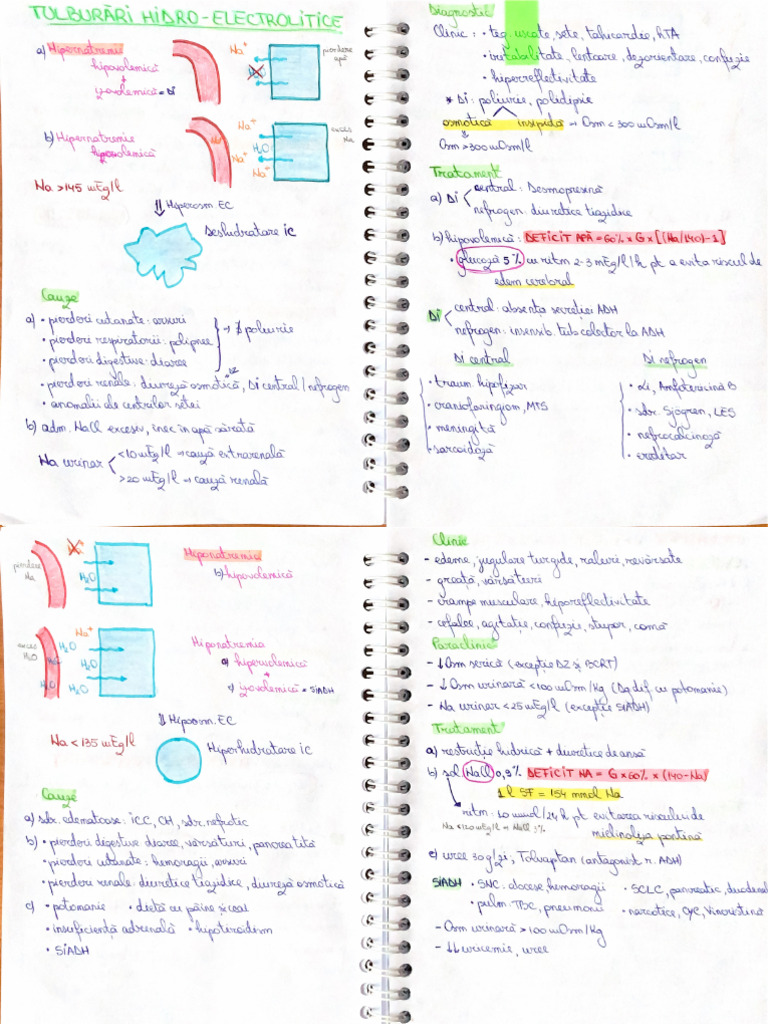 TULBURĂRI HIDRO-ELECTROLITICE
a) Hipernatremii
hipovolemică
+
izovolemică = DI
Na⁺
H₂O
pierdere apă
b) Hipernatremie
hipervolemică
Na⁺
Na⁺
H₂O
Na⁺
Na⁺
exces Na
Na >145 mEq/l
⇓ Hiperosm EC
Deshidratare IC
Cauze
a) • pierderi cutanate: arsuri
• pierderi respiratorii: polipnee
• pierderi digestive: diaree
→ ∄ poliurie
• pierderi renale: diureză osmotică, DI central / nefrogen
• anomalii ale centrilor setei
b) adm. NaCl excesiv, înec în apă sărată
Na urinar
<10 mEq/l → cauză extrarenală
>20 mEq/l → cauză renală
Diagnostic
Clinic: • teg. uscate, sete, tahicardie, hTA
• iritabilitate, letargie, dezorientare, confuzie
• hiperreflectivitate
* DI: poliurie, polidipsie
osmotică insipidă → Osm < 300 mOsm/l
⇓
Osm >300 mOsm/l
Tratament
a) DI
central: Desmopresină
nefrogen: diuretice tiazidice
b) hipovolemică: DEFICIT APĂ = 60% x G x [(Na/140)-1]
• glucoză 5% cu ritm 2-3 mEq/l/h pt a evita riscul de
edem cerebral
DI
central: absența secreției ADH
nefrogen: insensib. tub colector la ADH
DI central
• traum. hipofizar
• craniofaringiom, MTS
• meningită
• sarcoidoză
DI nefrogen
• Li, Amfotericina B
• sdr. Sjögren, LES
• nefrocalcinoză
• ereditar
pierdere Na
Na⁺
H₂O
H₂O
Hiponatremie
b) hipovolemică
exces H₂O
H₂O
Na⁺
H₂O
H₂O
H₂O
H₂O
Hiponatremia
a) hipervolemică
c) izovolemică = SIADH
⇓ Hipoosm. EC
Na < 135 mEq/l
Hiperhidratare IC
Cauze
a) sdr. edematoase: ICC, CH, sdr. nefrotic
b) • pierderi digestive: diaree, vărsături, pancreatită
• pierderi cutanate: hemoragii, arsuri
• pierderi renale: diuretice tiazidice, diureză osmotică
c) • potomanie • dietă cu pâine și ceai
• insuficiență adrenală • hipotiroidism
• SIADH
Clinic
- edeme, jugulare turgide, raluri, revărsate
- greață, vărsături
- crampe musculare, hiporeflectivitate
- cefalee, agitație, confuzii, stupor, comă
Paraclinic
- ↓Osm serică (excepție DZ și BCRT)
- ↓ Osm urinară <100 mOsm/Kg (Dg dif. cu potomanie)
- Na urinar <25 mEq/l (excepție SIADH)
Tratament
a) restricție hidrică + diuretice de ansă
b) sol NaCl 0,9% DEFICIT NA = G x 60% x (140-Na)
1 l SF = 154 mmol Na
ritm: 10 mmol/24 h pt evitarea riscului de
Na <120 mEq/l → NaCl 3%
mielinoliză pontină
c) uree 30 g/zi; Tolvaptan (antagonist r. ADH)
SIADH • SNC: abcese, hemoragii • SCLC, pancreatic, duodenal
• pulm: TBC, pneumonii • narcotice, CYC, Vincristină
- Osm urinară >100 mOsm/Kg
- ↓↓ uricemie, uree